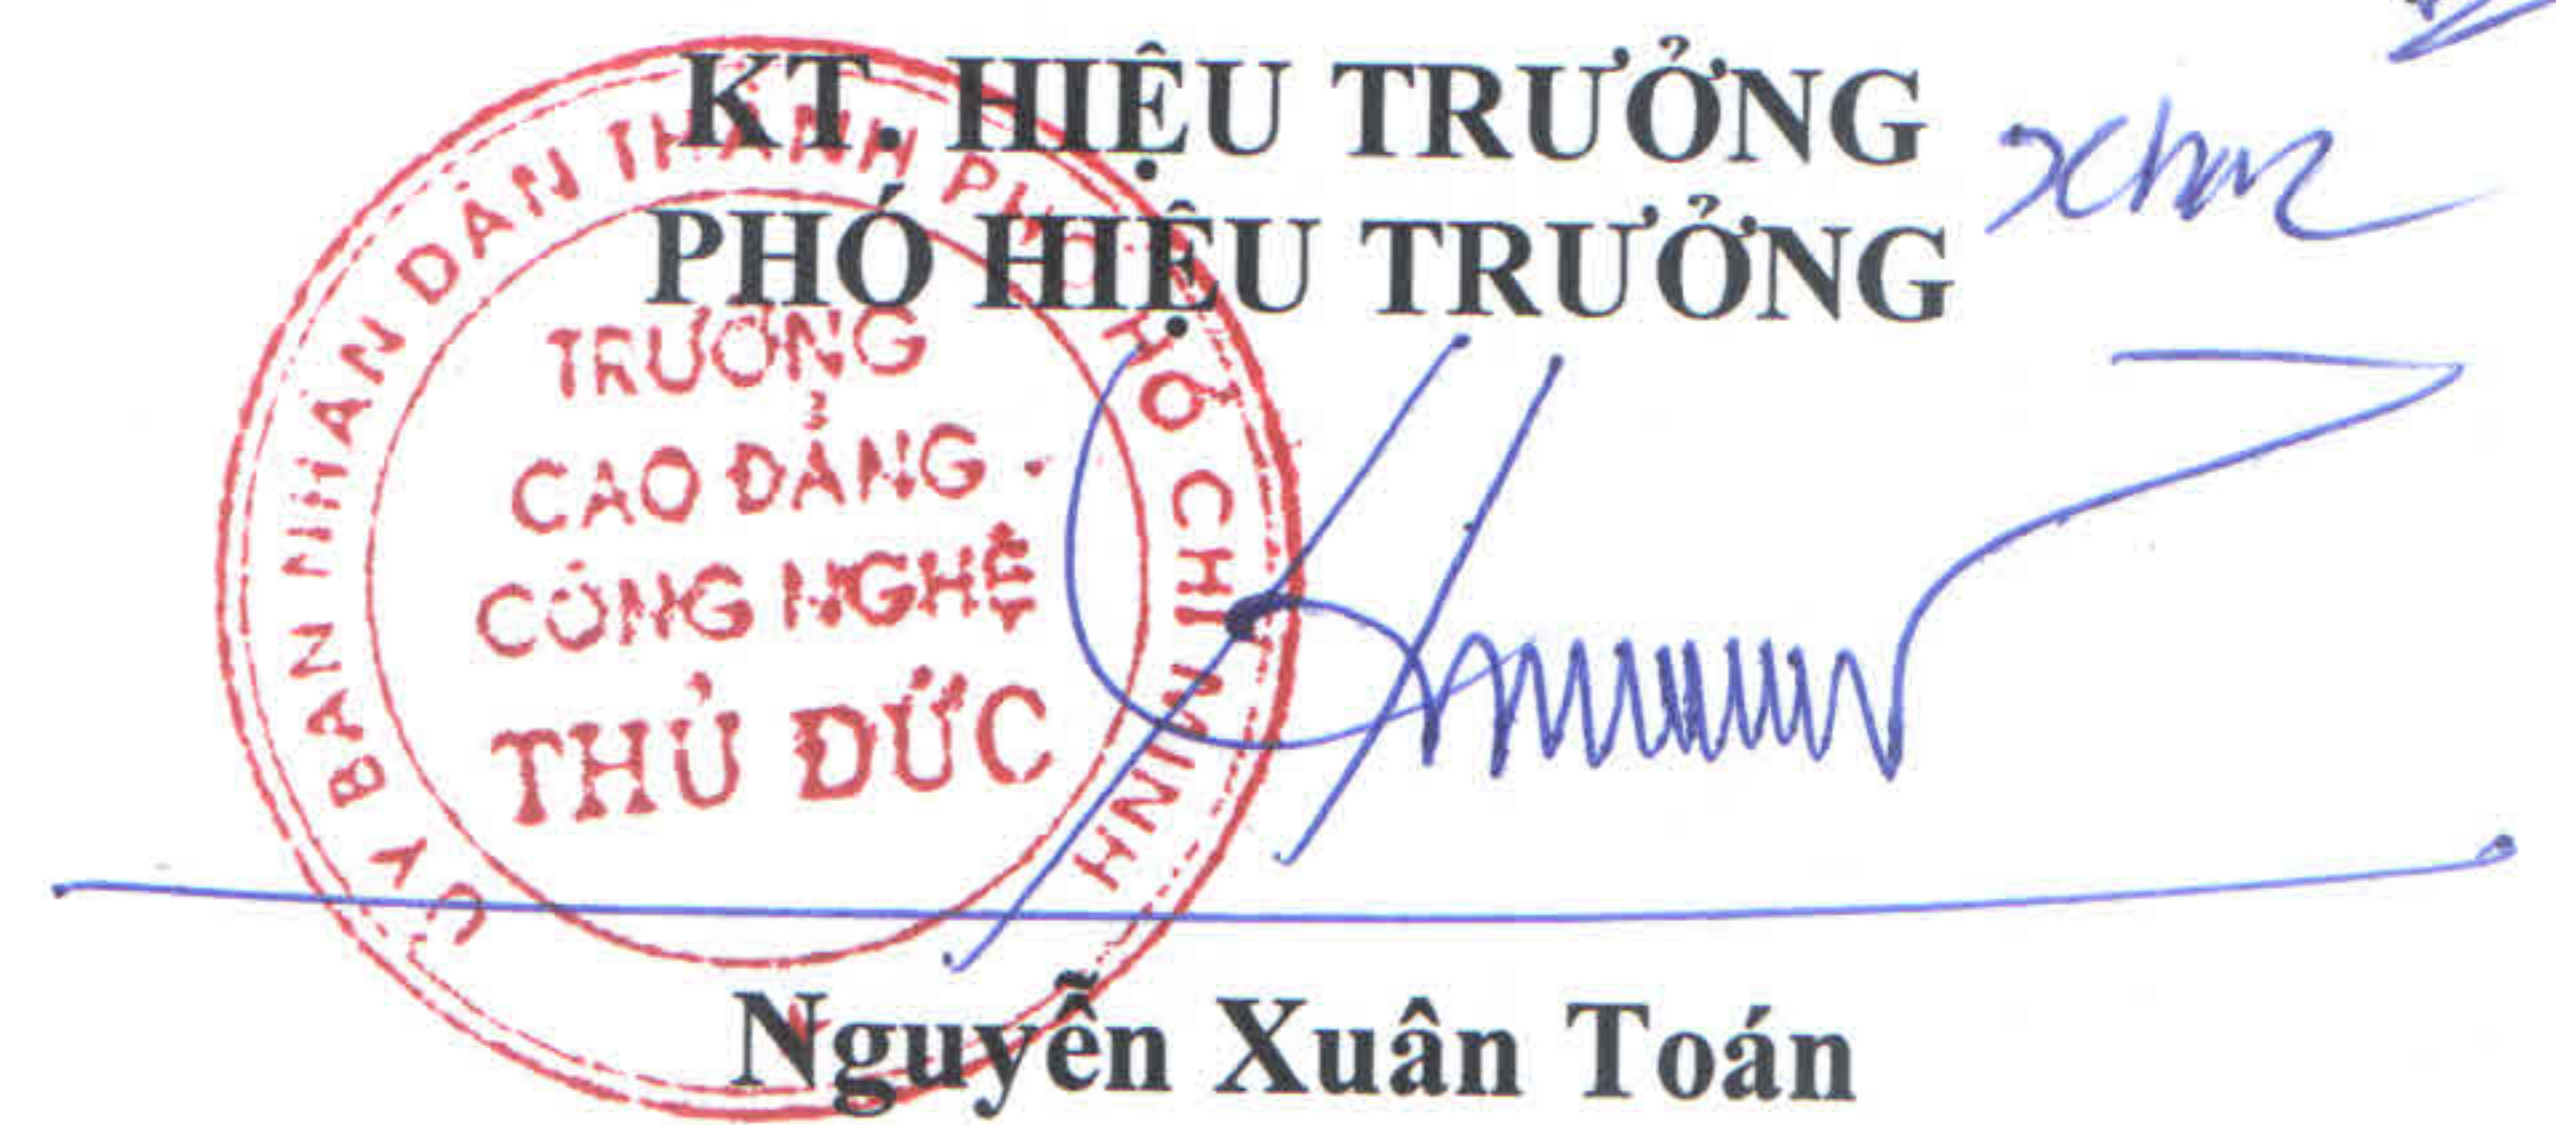 KT. HIỆU TRƯỞNG
PHÓ HIỆU TRƯỞNG
ỦY BAN NHÂN DÂN THÀNH PHỐ HỒ CHÍ MINH
TRƯỜNG
CAO ĐẲNG
CÔNG NGHỆ
THỦ ĐỨC
Nguyễn Xuân Toán